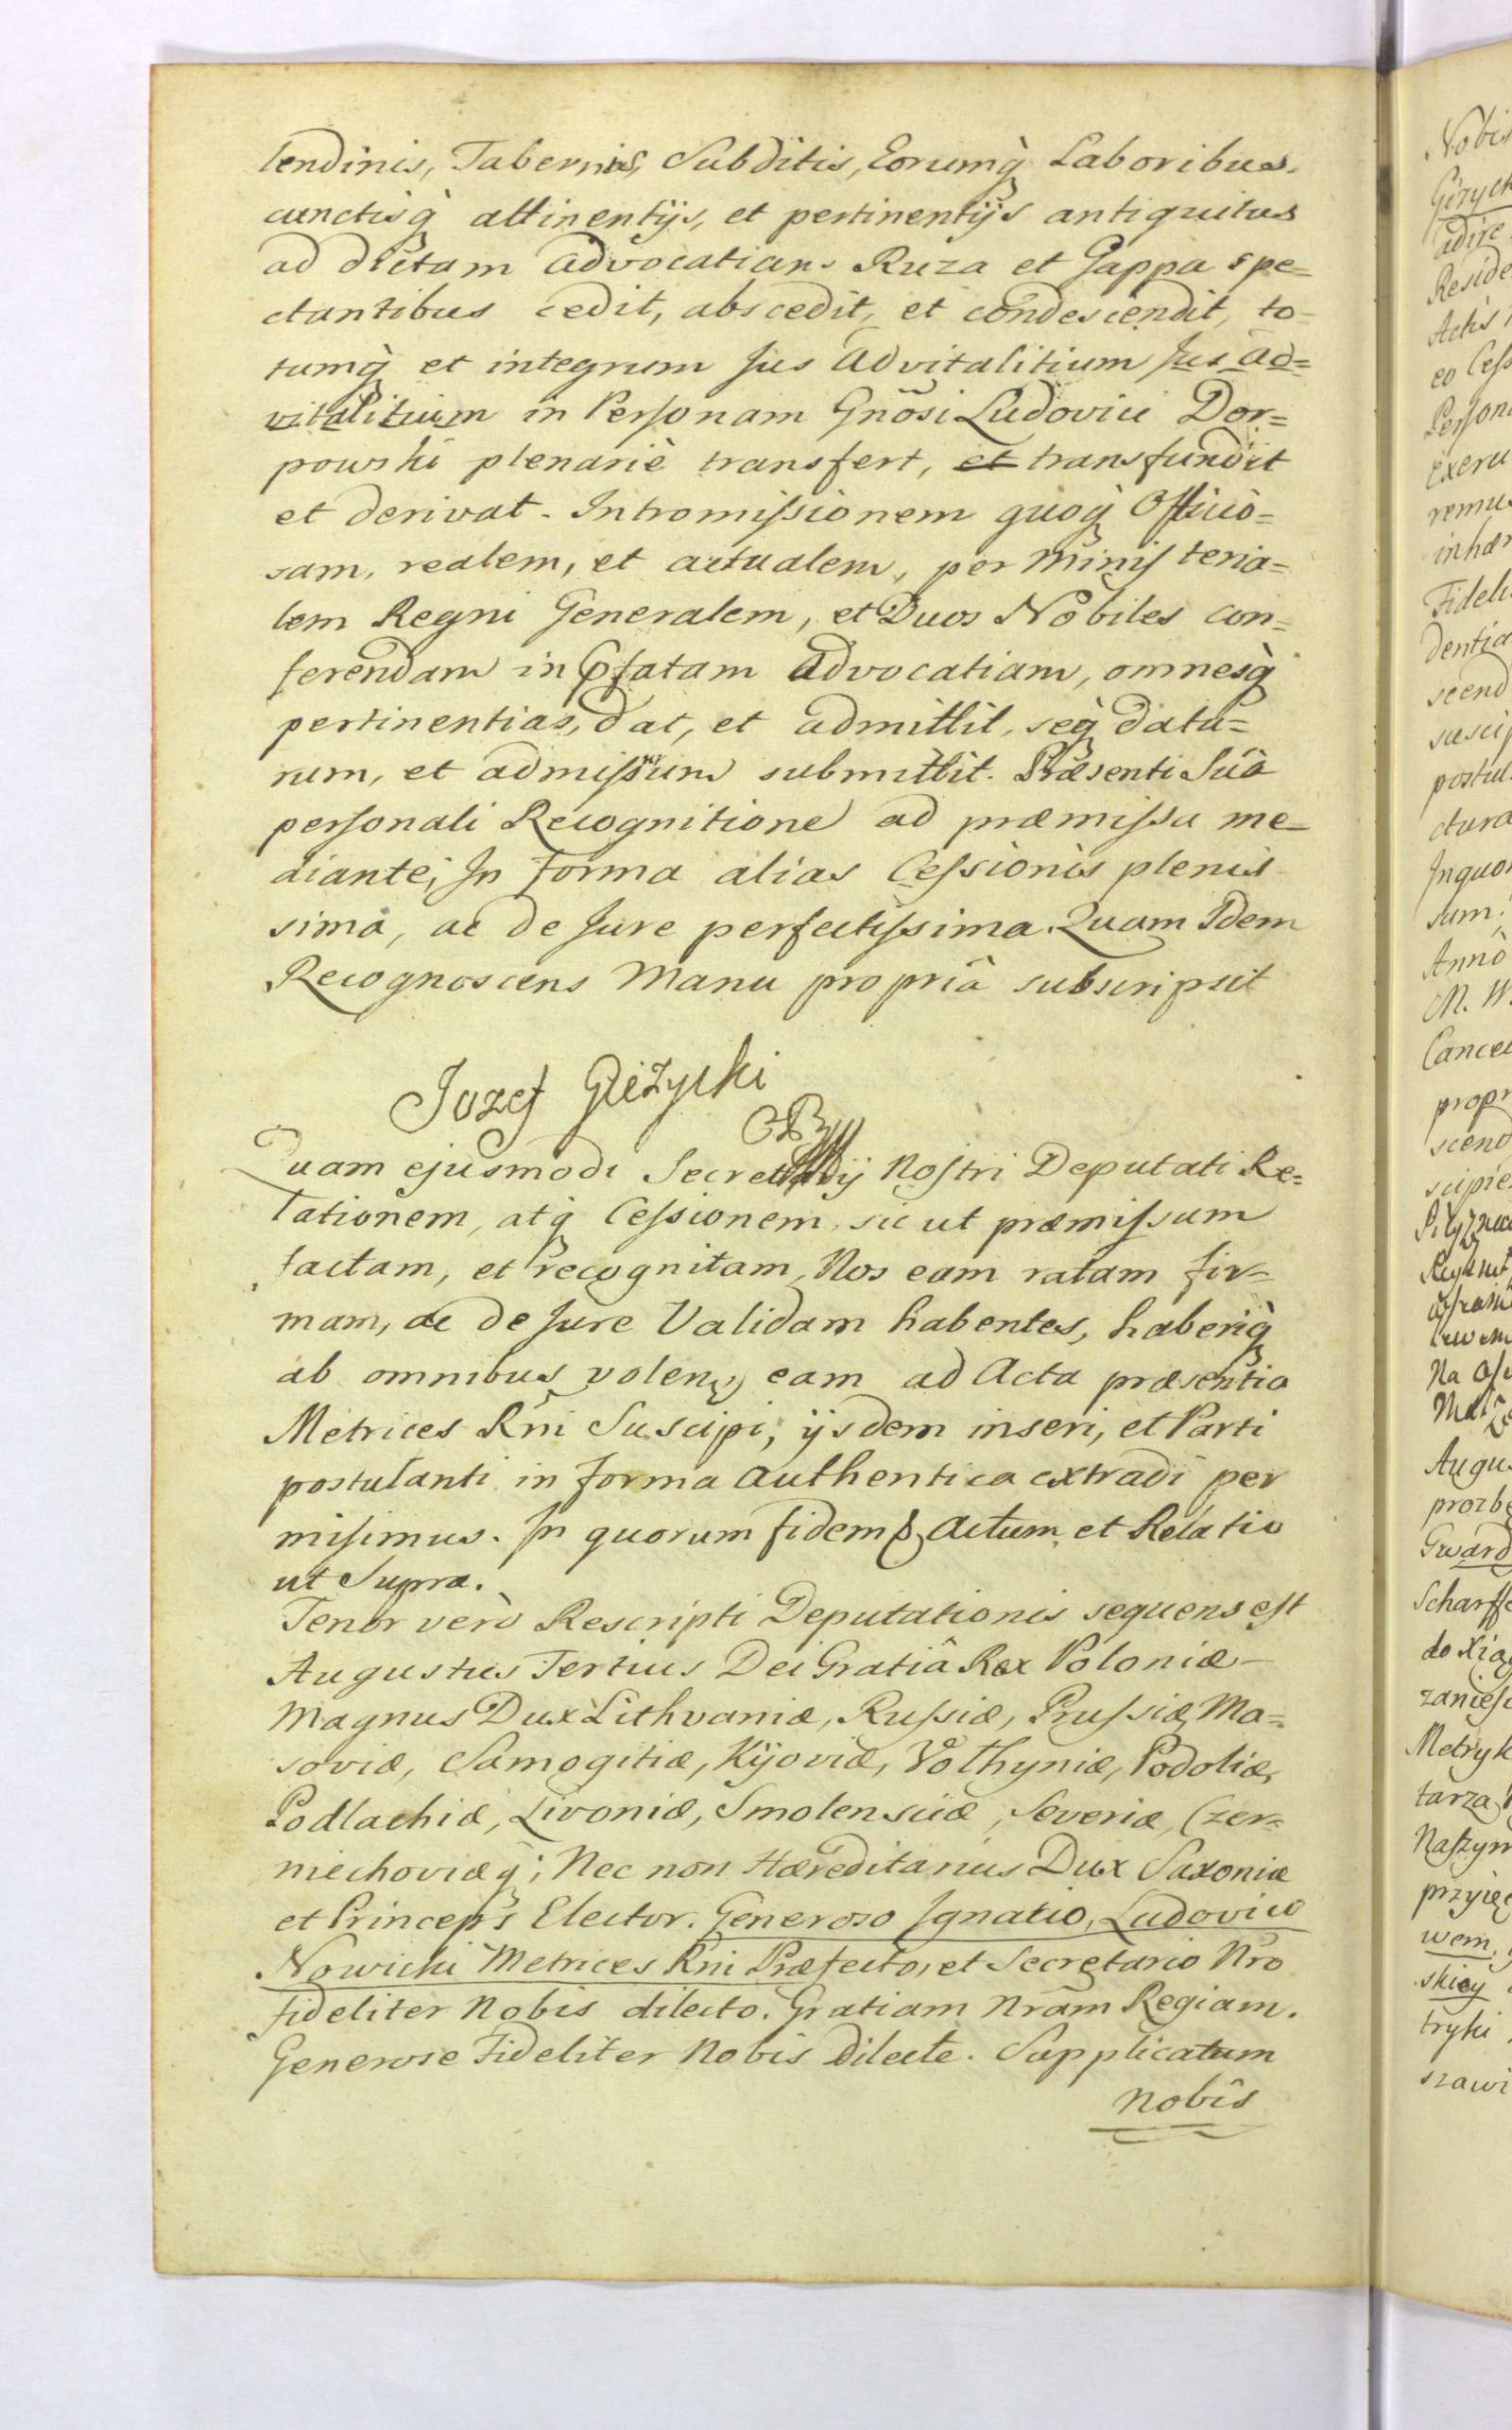 lendinis, Tabernis, Subditis, Eorumq̀ Laboribus.
cunctisq̀ attinentijs, et pertinentijs antiquitus
ad dictam advocatiam Ruza et Gappa spe=
ctantibus cedit, abscedit, et condescendit, to-
tumq̀ et integrum Jus Advitalitium Jus Ad=
vitalitium in Personam Gnõsi Ludovici Dor=
powski plenariè transfert, et transfundit
et derivat. Intromissionem quoq̀ Officiò=
sam, realem, et actualem, per Ministeria=
lem Regni Generalem, et Duos Nobiles con=
ferendam in Pfatam advocatiam, omnesq̀
pertinentias, dat, et admittit, seq̀ datu=
rum, et admissurum submittit. Præsenti Suâ
personali Recognitione ad præmissa me-
diante, In Forma alias Cessionis plenis-
sima, ac de Jure perfectissima. Quam Idem
Recognoscens Manu propriâ subscripsit
Jozef Giżycki
Quam ejusmodi Secretarij Nostri Deputati Re=
lationem, atq̀ Cessionem, sic ut præmissum
factam, et recognitam, Nos eam ratam fir=
mam, ac de Jure Validam habentes, haberiq̀
ab omnibus volentes, eam ad Acta præsentia
Metrices Rñi Suscipi, ijsdem inseri, et Parti
postulanti in forma authentica extradi per
misimus. In quorum fidem &. Actum, et Relatio
ut Supra.
Tenor verò Rescripti Deputationis sequens est
Augustus Tertius Dei Gratiâ Rex Poloniæ
Magnus Dux Lithvaniæ, Russiæ, Prussiæ, Ma=
soviæ, Samogitiæ, Kijoviæ, Volhyniæ, Podoliæ,
Podlachiæ, Livoniæ, Smolensciæ, Severiæ, Czer=
niechoviæq̀; Nec non Hæreditarius Dux Saxoniæ
et Princeps Elector. Generoso Ignatio, Ludovico
Nowicki Metrices Rñi Præfecto, et Secretario Nro
fideliter Nobis dilecto. Gratiam Nrãm Regiam.
Generose Fideliter Nobis Dilecte. Supplicatum
nobis